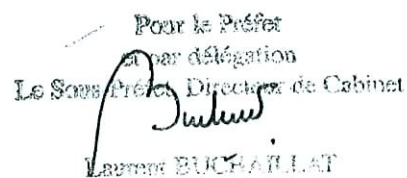 Pour le Préfet
et par délégation
Le Sous-Préfet, Directeur de Cabinet
Laurent BUCHAILLAT